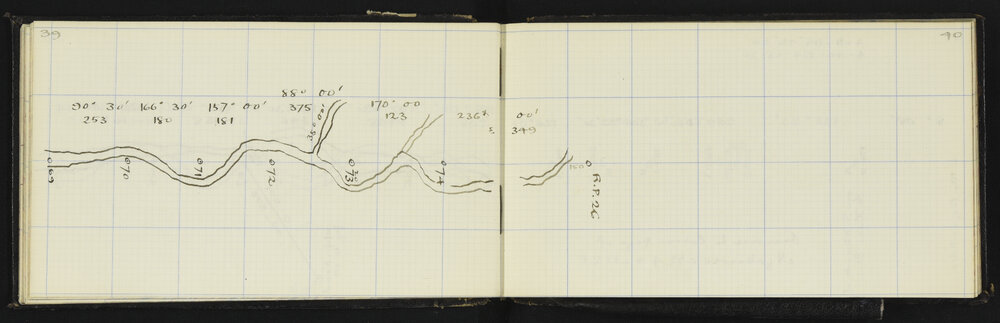 39
40
88° 00'
90° 30' 166° 30' 157° 00' 375 170° 00 236° 00'
253 180 181 123 349
069
070
071
072
073
074
150
R.P. 26